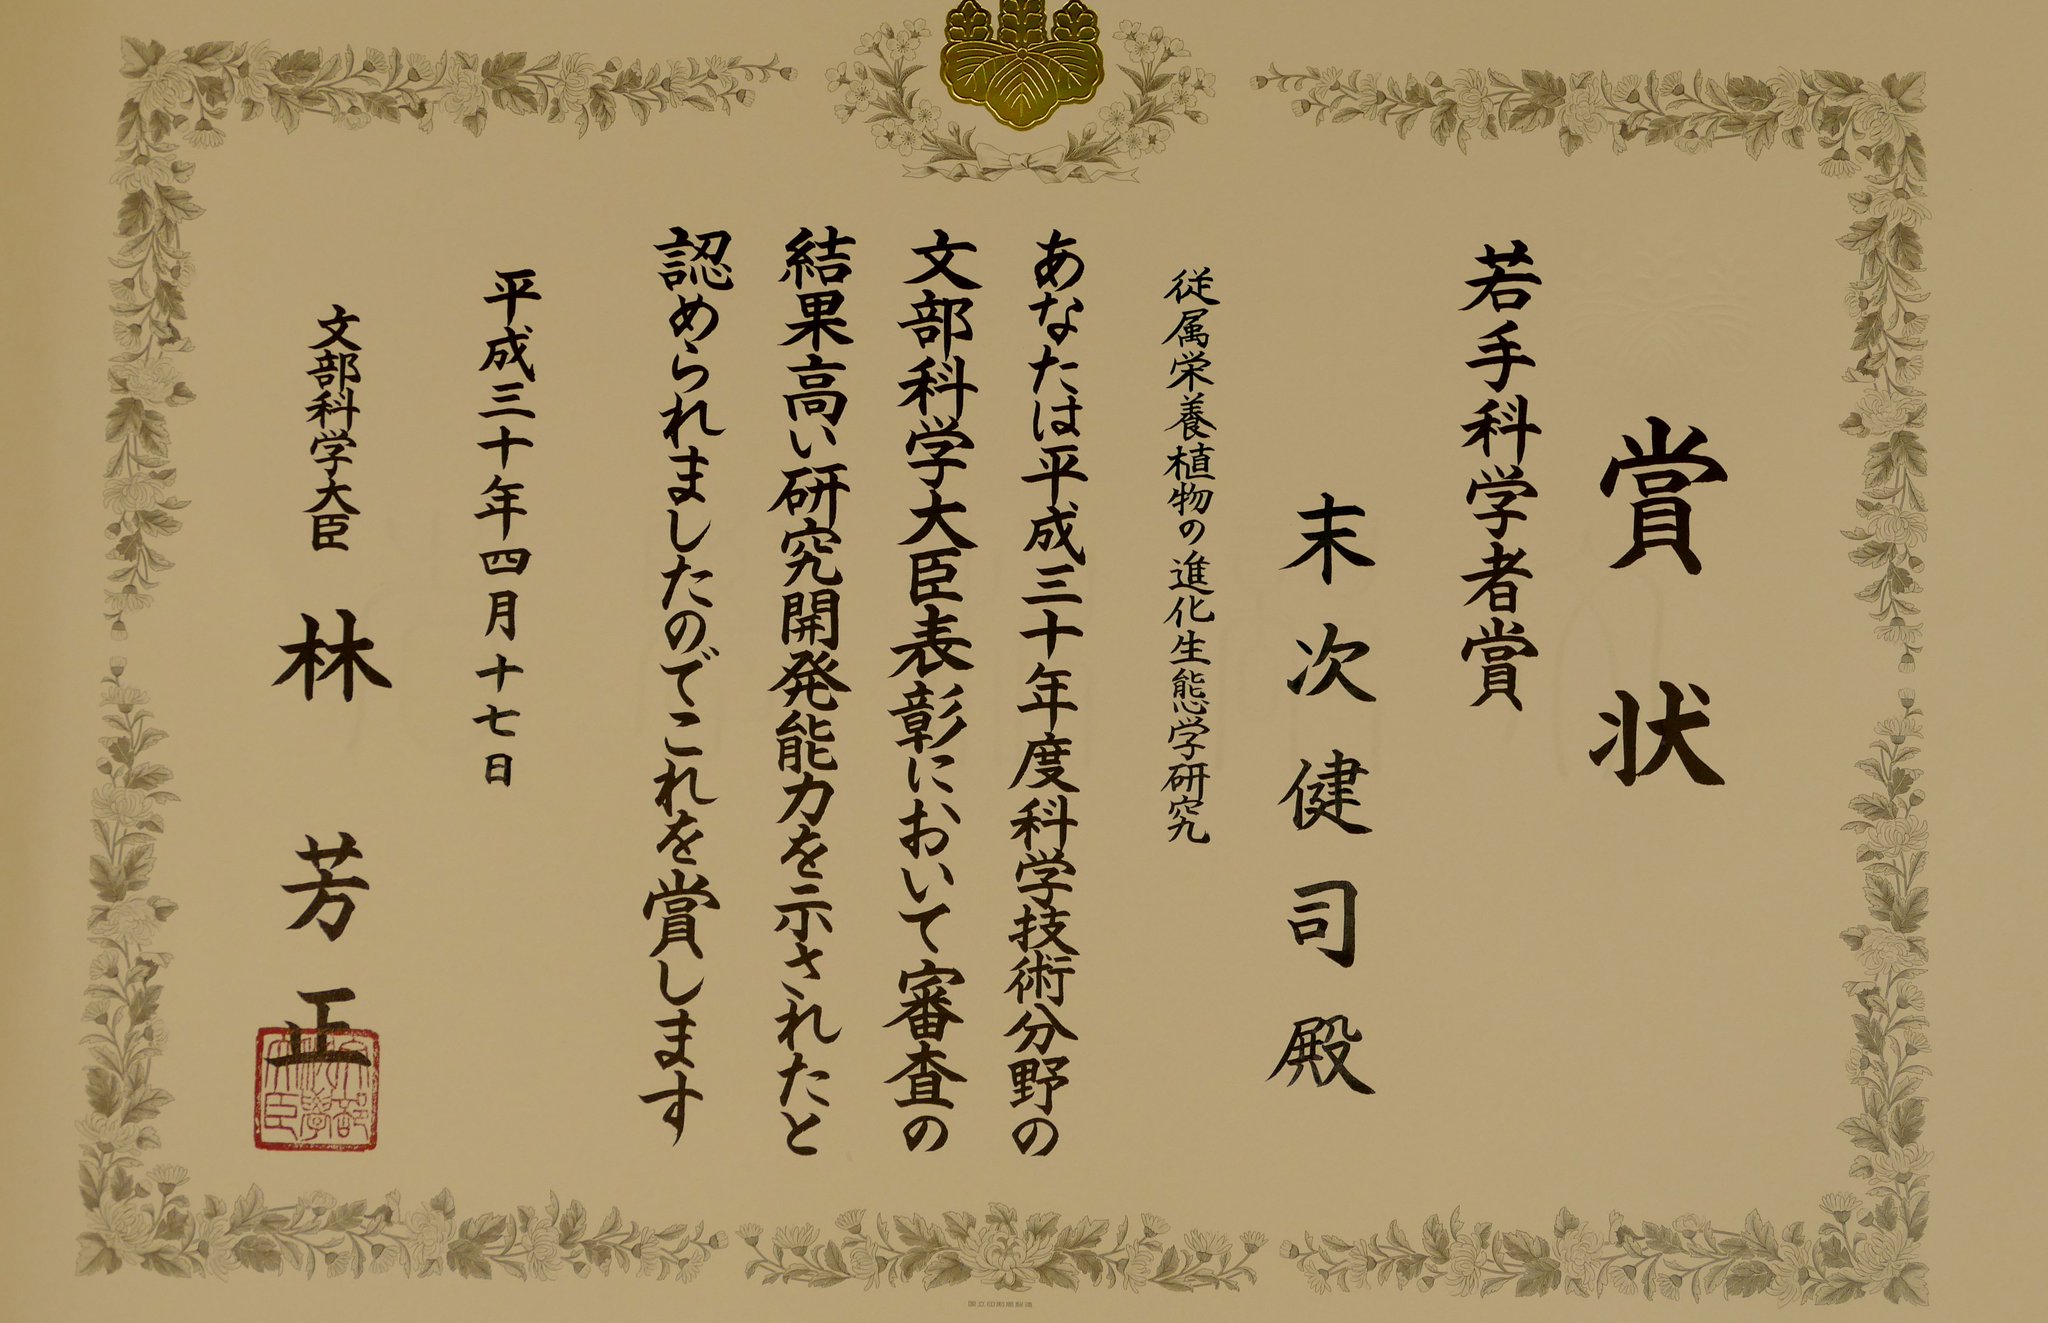 賞状
若手科学者賞
末次健司殿
従属栄養植物の進化生態学研究
あなたは平成三十年度科学技術分野の
文部科学大臣表彰において審査の
結果高い研究開発能力を示されたと
認められましたのでこれを賞します
平成三十年四月十七日
文部科学大臣
林芳正